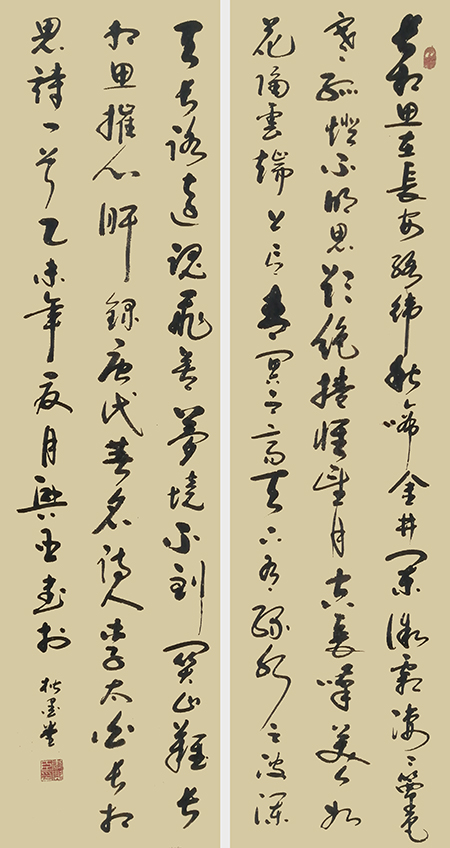 長相思在長安絡緯秋啼金井闌微霜淒淒簟色
寒孤燈不明思欲絕捲帷望月空長嘆美人如
花隔雲端上有青冥之高天下有綠水之波瀾
天長路遠魂飛苦夢境不到關山難長
相思摧心肝錄唐代著名詩人李太白長相
思詩一首乙未年夏月興書於
墨堂